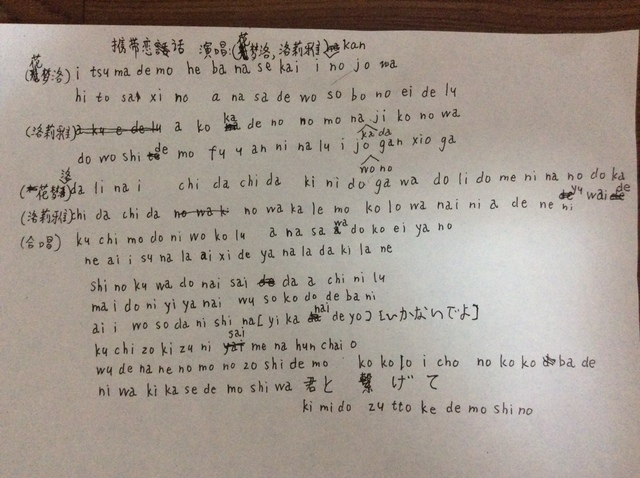 携带恋话 演唱:(花梦洛,洛莉雅)kan
(花梦洛) i tsu ma de mo he ba na se kai i no jo wa
hi to san xi no a na sa de wo so bo no ei de lu
(洛莉雅) a ku e de lu a ko ka de no no mo na ji ko no wa
do wo shi de mo fu y an ni na lu i jo ka da gan xio ga
wo no
(花梦洛) da li na i chi da chi da ki ni do ga wa do li do me ni na no do ka de
(洛莉雅) chi da chi da no wa ki no wa ka le mo ko lo wa nai ni a de ne ni yu wai
(合唱) ku chi mo do ni wo ko lu a na sa wa do ko ei ya no
ne ai i su na la ai xi de ya na la da ki la ne
shi no ku wa do nai sai da a chi ni lu
mai do ni yi ya nai wu so ko do de ba ni
ai i wo so da ni shi na [yi ka nai de yo] [いかないでよ]
ku chi zo ki zu ni sai me na hun chai o
wu de na ne no mo no zo shi de mo ko ko lo i cho no ko ko ba de
ni wa ki ka se de mo shi wa 君と 繋げて
ki mi do zu tto ke de mo shi no